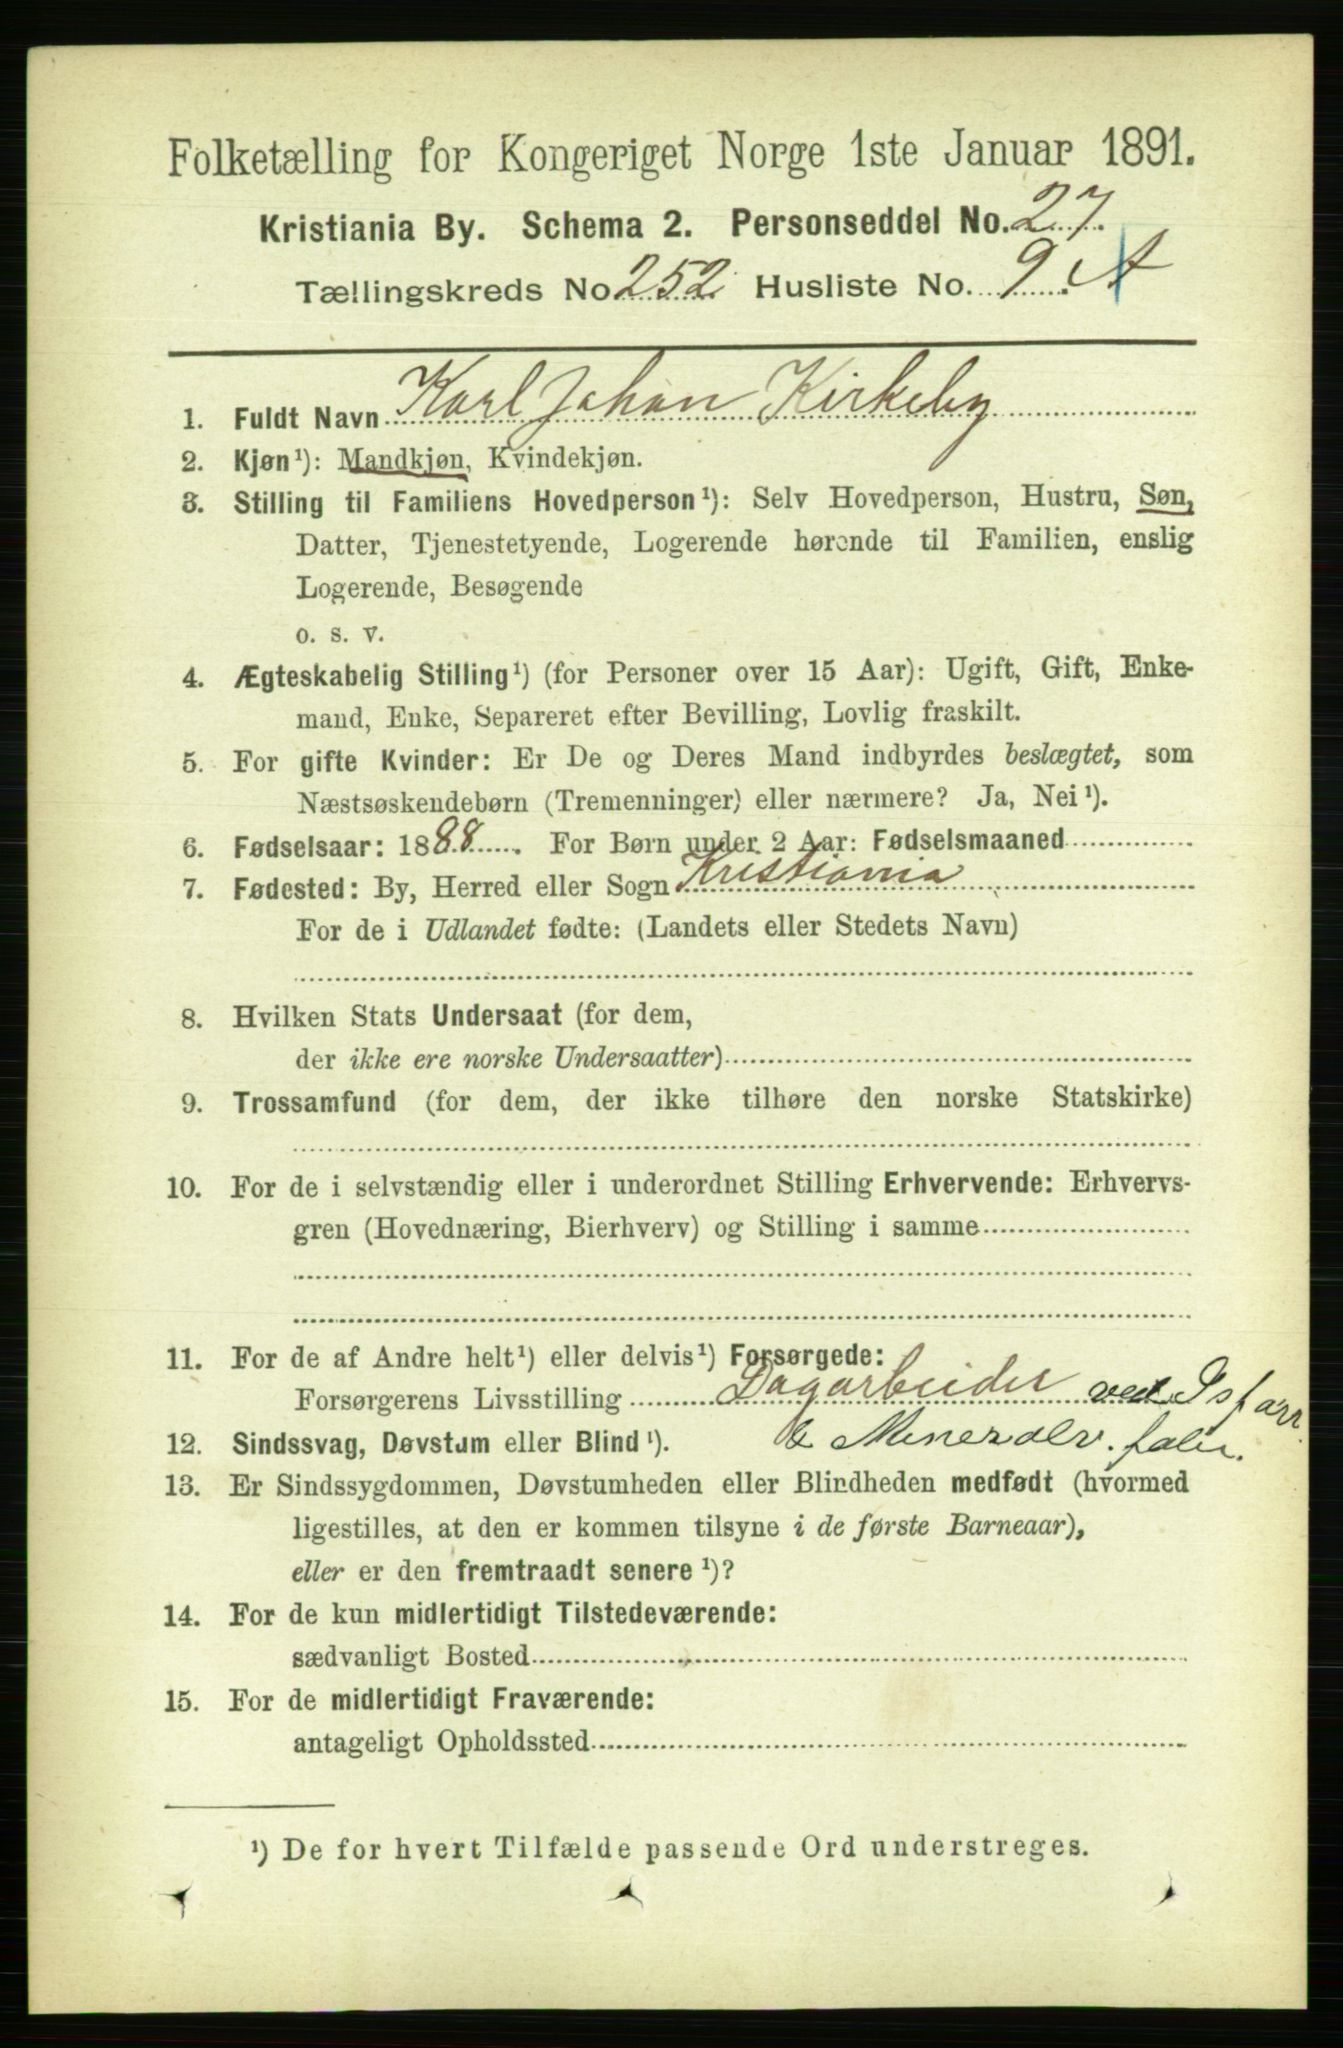 Folketælling for Kongeriget Norge 1ste Januar 1891.
Kristiania By. Schema 2. Personseddel No. 27.
Tællingskreds No 252. Husliste No. 9. A
1. Fuldt Navn Karl Johan Kirkeby
2. Kjøn¹): Mandkjøn, Kvindekjøn.
3. Stilling til Familiens Hovedperson¹): Selv Hovedperson, Hustru, Søn,
Datter, Tjenestetyende, Logerende hørende til Familien, enslig
Logerende, Besøgende
o. s. v.
4. Ægteskabelig Stilling¹) (for Personer over 15 Aar): Ugift, Gift, Enke-
mand, Enke, Separeret efter Bevilling, Lovlig fraskilt.
5. For gifte Kvinder: Er De og Deres Mand indbyrdes beslægtet, som
Næstsøskendebørn (Tremenninger) eller nærmere? Ja, Nei¹).
6. Fødselsaar: 1888. For Børn under 2 Aar: Fødselsmaaned
7. Fødested: By, Herred eller Sogn Kristiania
For de i Udlandet fødte: (Landets eller Stedets Navn)
8. Hvilken Stats Undersaat (for dem,
der ikke ere norske Undersaatter)
9. Trossamfund (for dem, der ikke tilhøre den norske Statskirke)
10. For de i selvstændig eller i underordnet Stilling Erhvervende: Erhvervs-
gren (Hovednæring, Bierhverv) og Stilling i samme
11. For de af Andre helt¹) eller delvis¹) Forsørgede:
Forsørgerens Livsstilling Dagarbeider ved Isforr.
& Mineralv. fabr.
12. Sindssvag, Døvstum eller Blind¹).
13. Er Sindssygdommen, Døvstumheden eller Blindheden medfødt (hvormed
ligestilles, at den er kommen tilsyne i de første Barneaar),
eller er den fremtraadt senere¹)?
14. For de kun midlertidigt Tilstedeværende:
sædvanligt Bosted
15. For de midlertidigt Fraværende:
antageligt Opholdssted
¹) De for hvert Tilfælde passende Ord understreges.